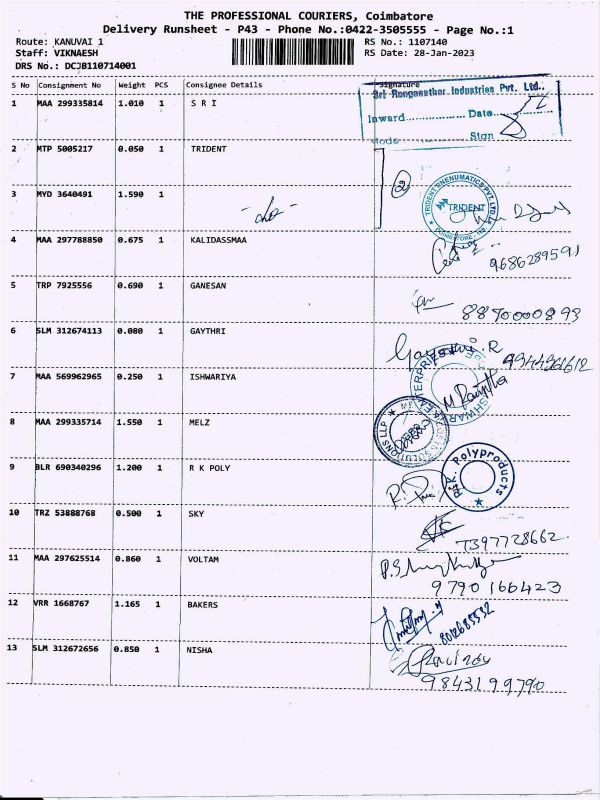 THE PROFESSIONAL COURIERS, Coimbatore
Delivery Runsheet - P43 - Phone No.:0422-3505555 - Page No.:1
Route: KANUVAI 1 RS No.: 1107140
Staff: VIKNAESH RS Date: 28-Jan-2023
DRS No.: DCJB110714001
S No Consignment No Weight PCS Consignee Details Signature
Sri Ranganathar Industries Pvt. Ltd.,
1 MAA 299335814 1.010 1 S R I
Inward................ Date................
Sign
2 MTP 5005217 0.050 1 TRIDENT
2
3 MYD 3640491 1.590 1
TRIDENT PNEUMATICS PVT LTD
TRIDENT
4 MAA 297788850 0.675 1 KALIDASSMAA
9686289591
5 TRP 7925556 0.690 1 GANESAN
8870000893
6 SLM 312674113 0.080 1 GAYTHRI
Gayathri.R 9344361612
7 MAA 569962965 0.250 1 ISHWARIYA
8 MAA 299335714 1.550 1 MELZ
9 BLR 690340296 1.200 1 R K POLY
R.K. Polyproducts
10 TRZ 53888768 0.500 1 SKY
7397728662
11 MAA 297625514 0.860 1 VOLTAM
9790166423
12 VRR 1668767 1.165 1 BAKERS
8012685532
13 SLM 312672656 0.850 1 NISHA
9843199790